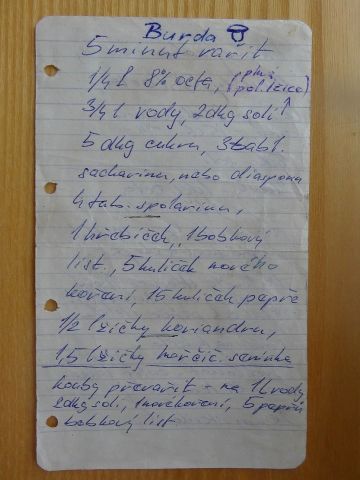 Burda
5 minut vařit
1/4 l 8% octa, (plná
pol. lžíce)
3/4 l vody, 2dkg soli
5 dkg cukru, 3 tabl.
sacharinu, nebo diasponu
4 tab. spolarinu,
1 hřebíček, 1 bobkový
list, 5 kuliček nového
koření, 15 kuliček pepře
1/2 lžičky koriandru,
1,5 lžičky hořčič. semínka
houby převařit - na 1l vody
2dkg soli, 1 nové koření, 5 pepřů
bobkový list